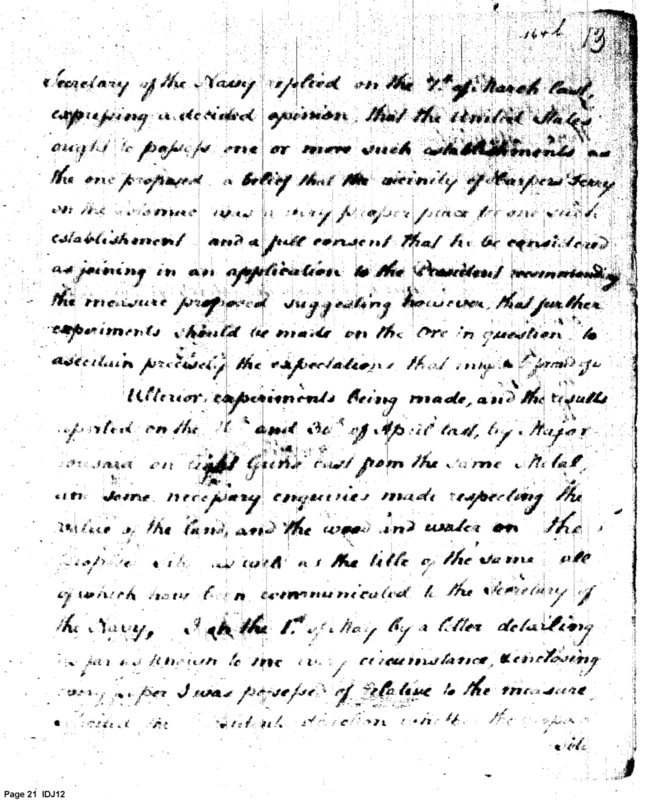 16th 13
Secretary of the Navy replied on the 7th of March last,
expressing a decided opinion, that the United States
ought to possess one or more such establishments as
the one proposed a belief that the vicinity of Harpers Ferry
on the Potomac was a very proper place for one such
establishment and a full consent that he be considered
as joining in an application to the President recommending
the measure proposed suggesting however, that further
experiments should be made on the Ore in question to
ascertain precisely the expectations that might be
Ulterior experiments being made, and the results
reported on the and 30th of April last, by Major
on Eight Guns cast from the same Metal,
and some necessary enquiries made respecting the
value of the land, and the wood and water on the
site as well as the title of the same all
of which have been communicated to the Secretary of
the Navy, I on the 1st of May by a letter detailing
as far as known to me every circumstance, & enclosing
every paper I was possessed of relative to the measure
the direction whether the
Site
Page 21 IDJ12